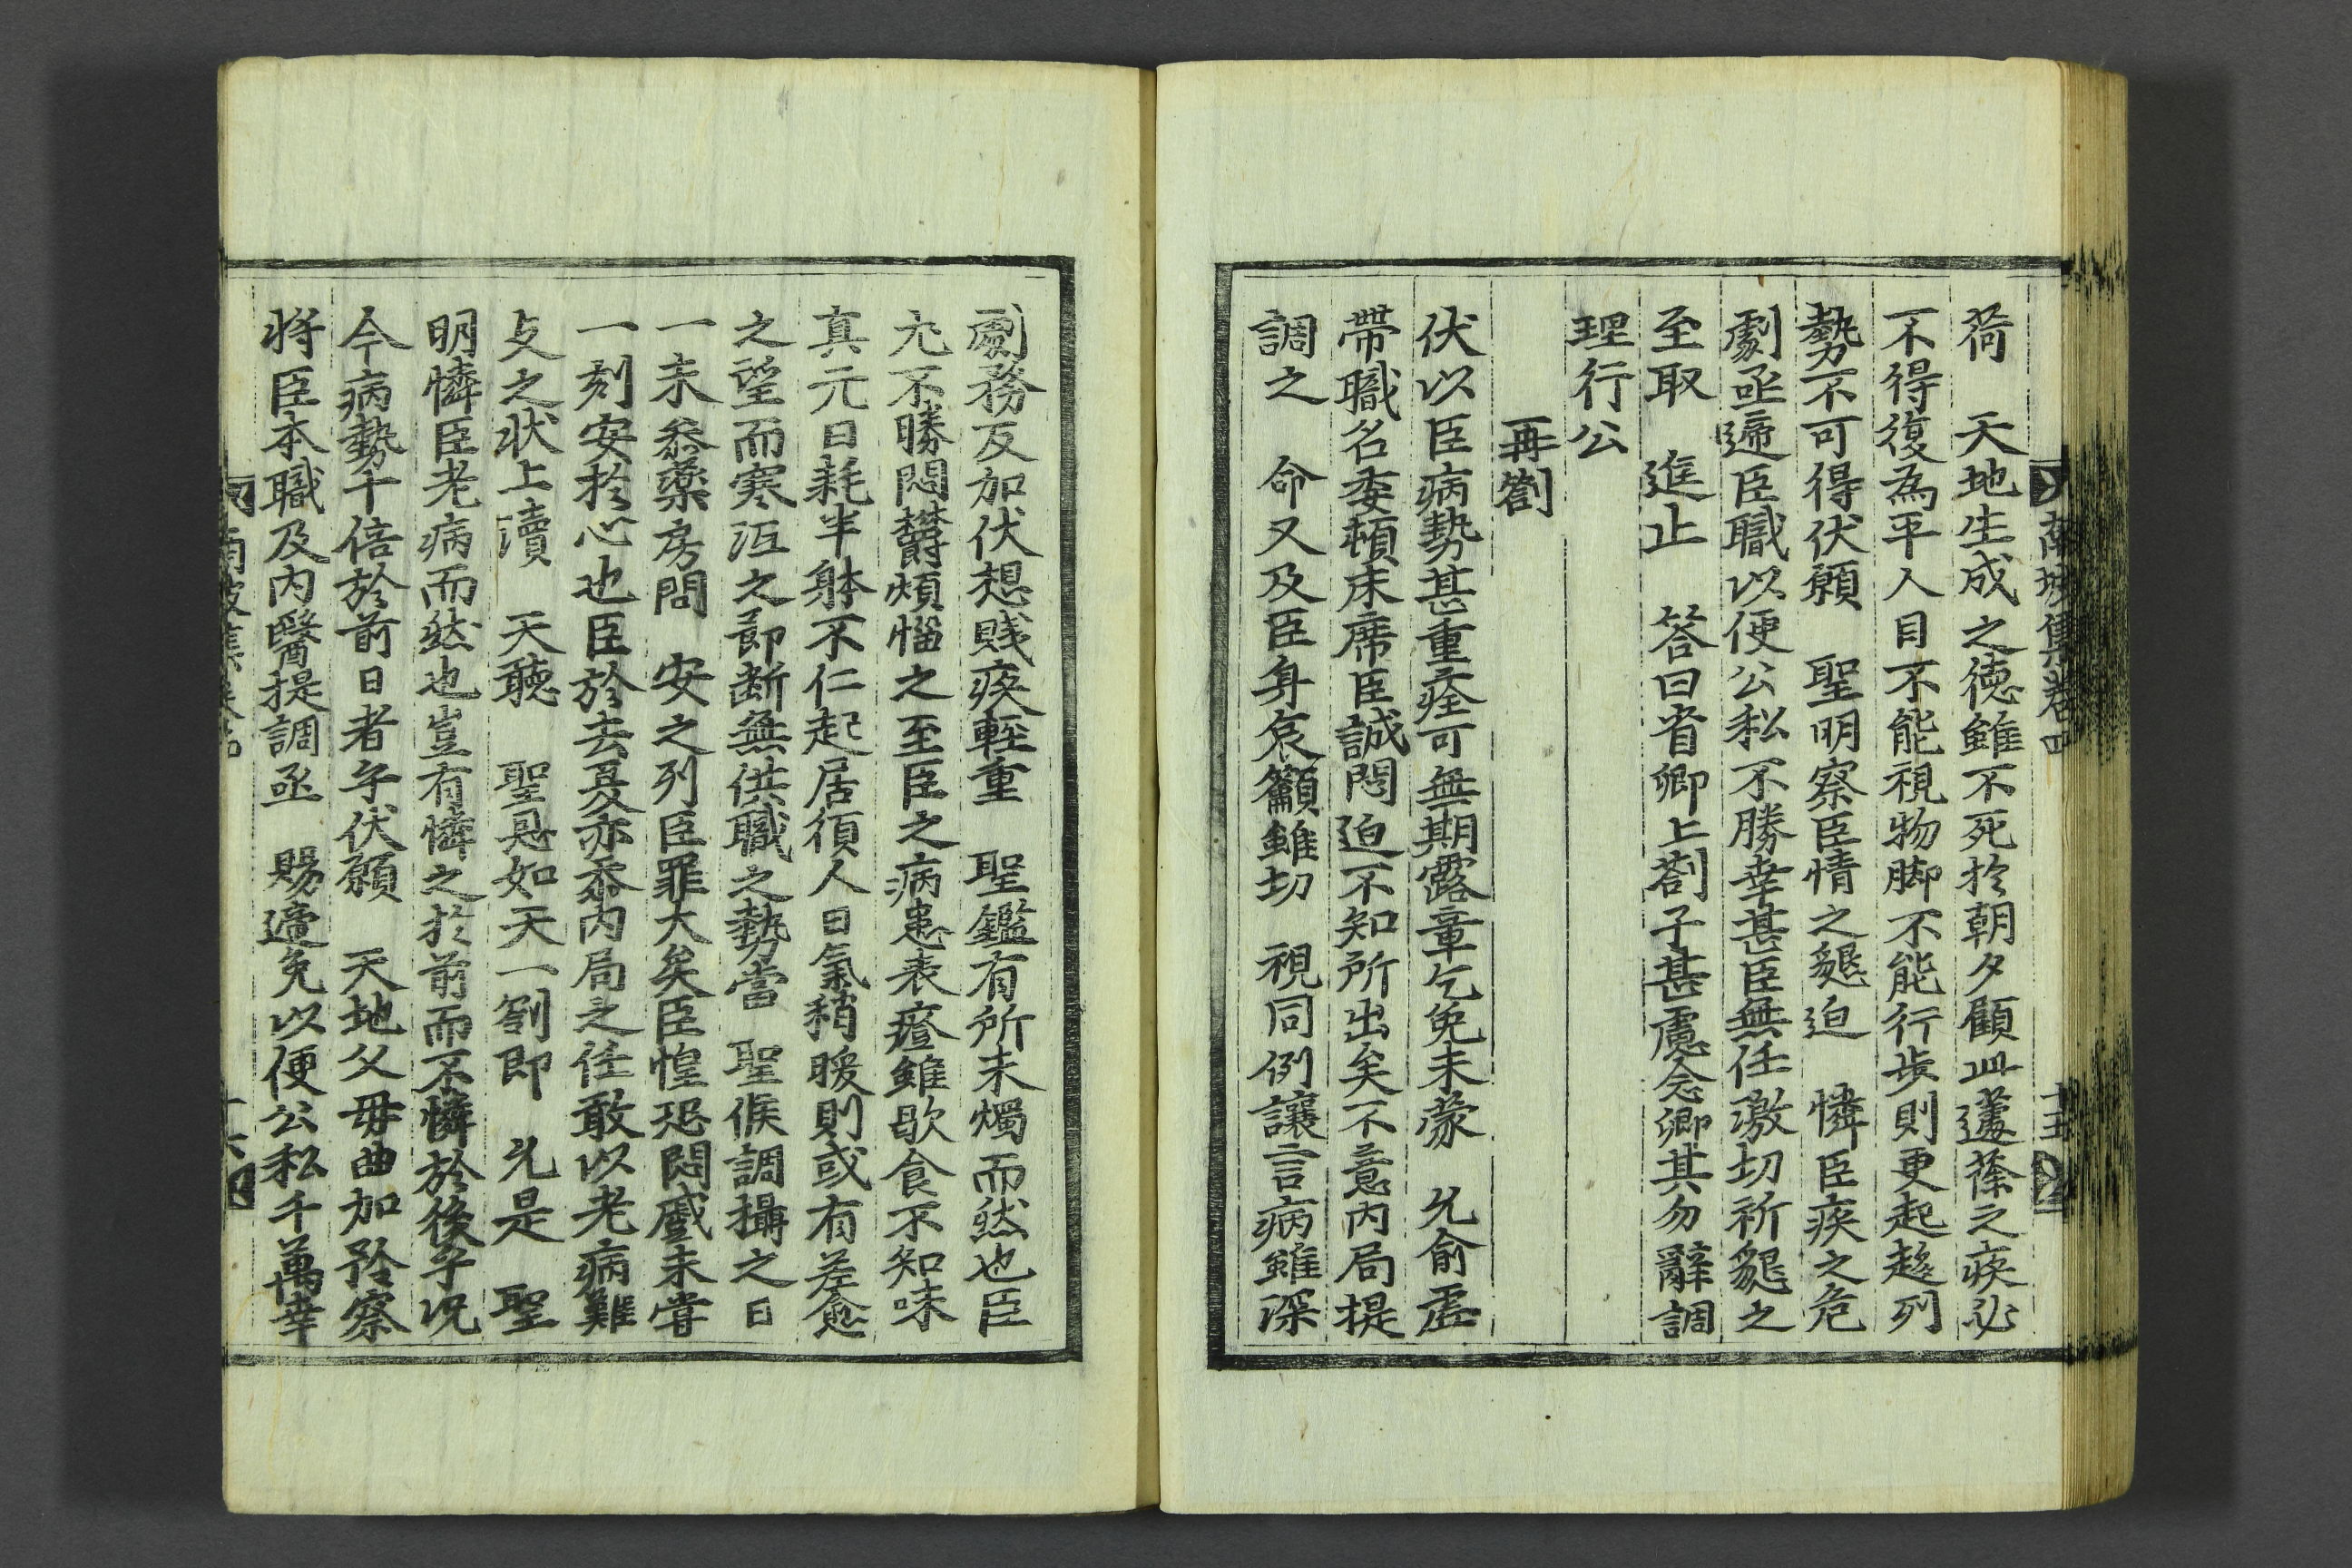 南坡集卷四
十五
荷 天地生成之德雖不死於朝夕顧此蘧蒢之疾必
不得復為平人目不能視物脚不能行步則更起趨列
勢不可得伏願 聖明察臣情之懇迫 憐臣疾之危
劇亟遞臣職以便公私不勝幸甚臣無任激切祈懇之
至取 進止 答曰省卿上劄子甚慮念卿其勿辭調
理行公
再劄
伏以臣病勢甚重痊可無期露章乞免未蒙 允俞虛
帶職名委頓床席臣誠悶迫不知所出矣不意內局提
調之 命又及臣身哀籲雖切 視同例讓言病雖深
劇務反加伏想賤疾輕重 聖鑑有所未燭而然也臣
尤不勝悶欝煩惱之至臣之病患表證雖歇食不知味
真元日耗半躰不仁起居須人日氣稍暖則或有差愈
之望而寒沍之節斷無供職之勢當 聖候調攝之日
一未叅藥房問 安之列臣罪大矣臣惶恐悶蹙未嘗
一刻安於心也臣於去夏亦忝內局之任敢以老病難
攴之狀上瀆 天聽 聖恩如天一劄即 允是 聖
明憐臣老病而然也豈有憐之於前而不憐於後乎况
今病勢十倍於前日者乎伏願 天地父母曲加矜察
將臣本職及內醫提調亟 賜遞免以便公私千萬幸
南坡集卷四
十六